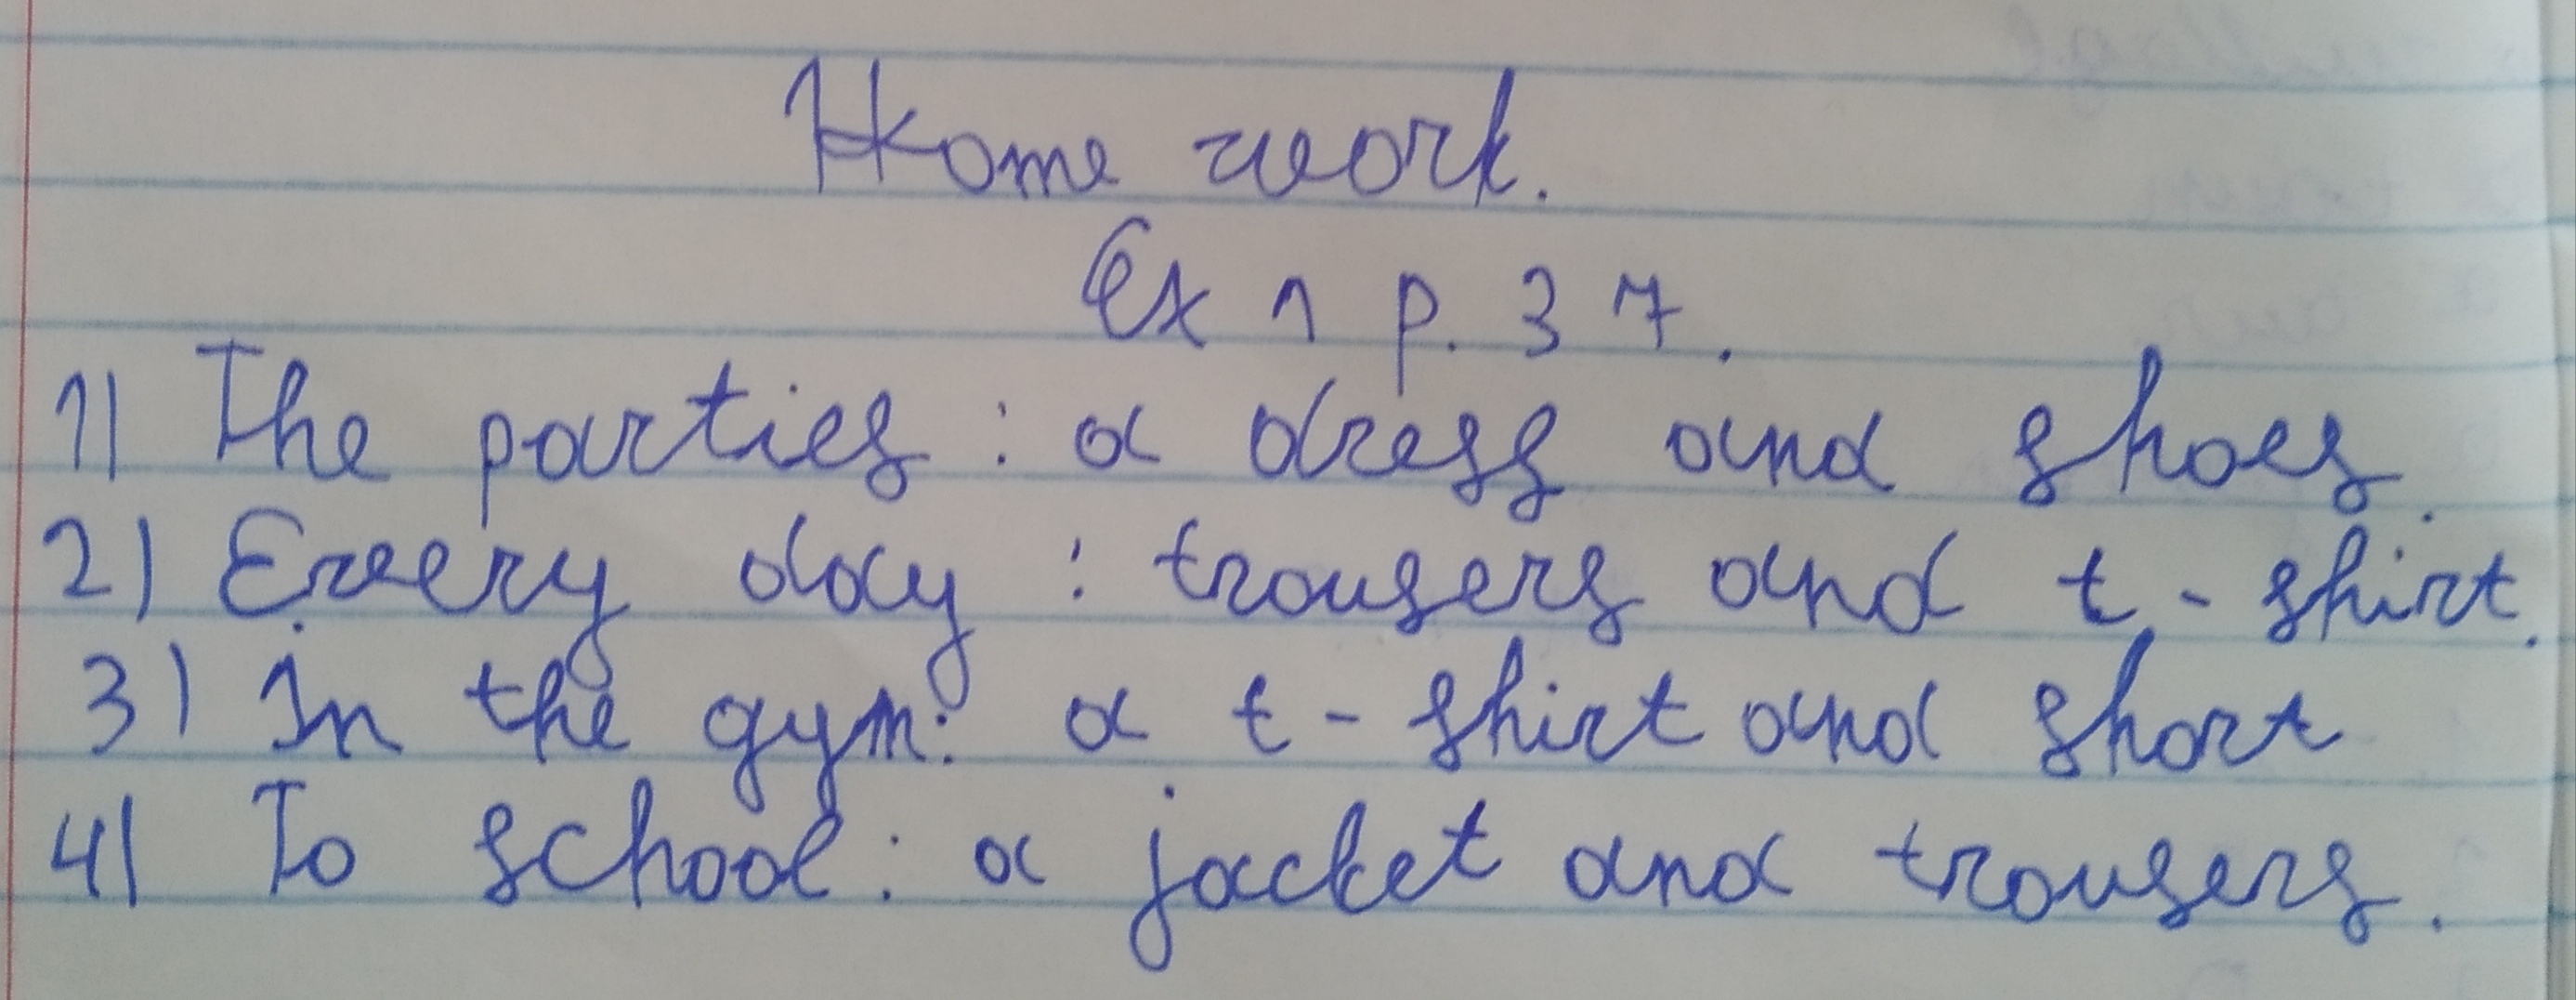 Home work.
Ex 1 p. 37.
1) The parties : a dress and shoes.
2) Every day : trousers and t - shirt.
3) In the gym: a t - shirt and short
4) To school: a jacket and trousers.